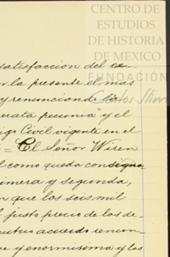 CENTRO DE
ESTUDIOS
DE HISTORIA
DE MEXICO
FUNDACIÓN
Carlos Slim
satisfaccion del ex-
r la presente el mas
y renunciando
pecunia" y el
igo Civil vigente en el
= El Señor Wiren
l como queda consigna
imera y segunda,
que los seis mil
l justo precio de los de-
acuerdo renun
e y enormisima y los